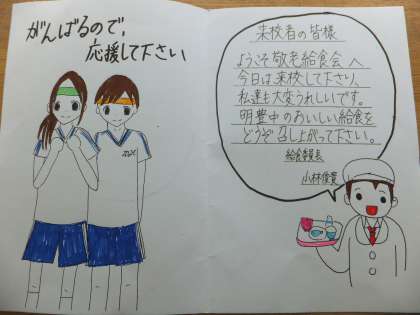 がんばるので、
応援して下さい
来校者の皆様
ようこそ敬老給食会へ
今日は来校して下さり、
私達も大変うれしいです。
明豊中のおいしい給食を
どうぞ召し上がって下さい。
給食委員長